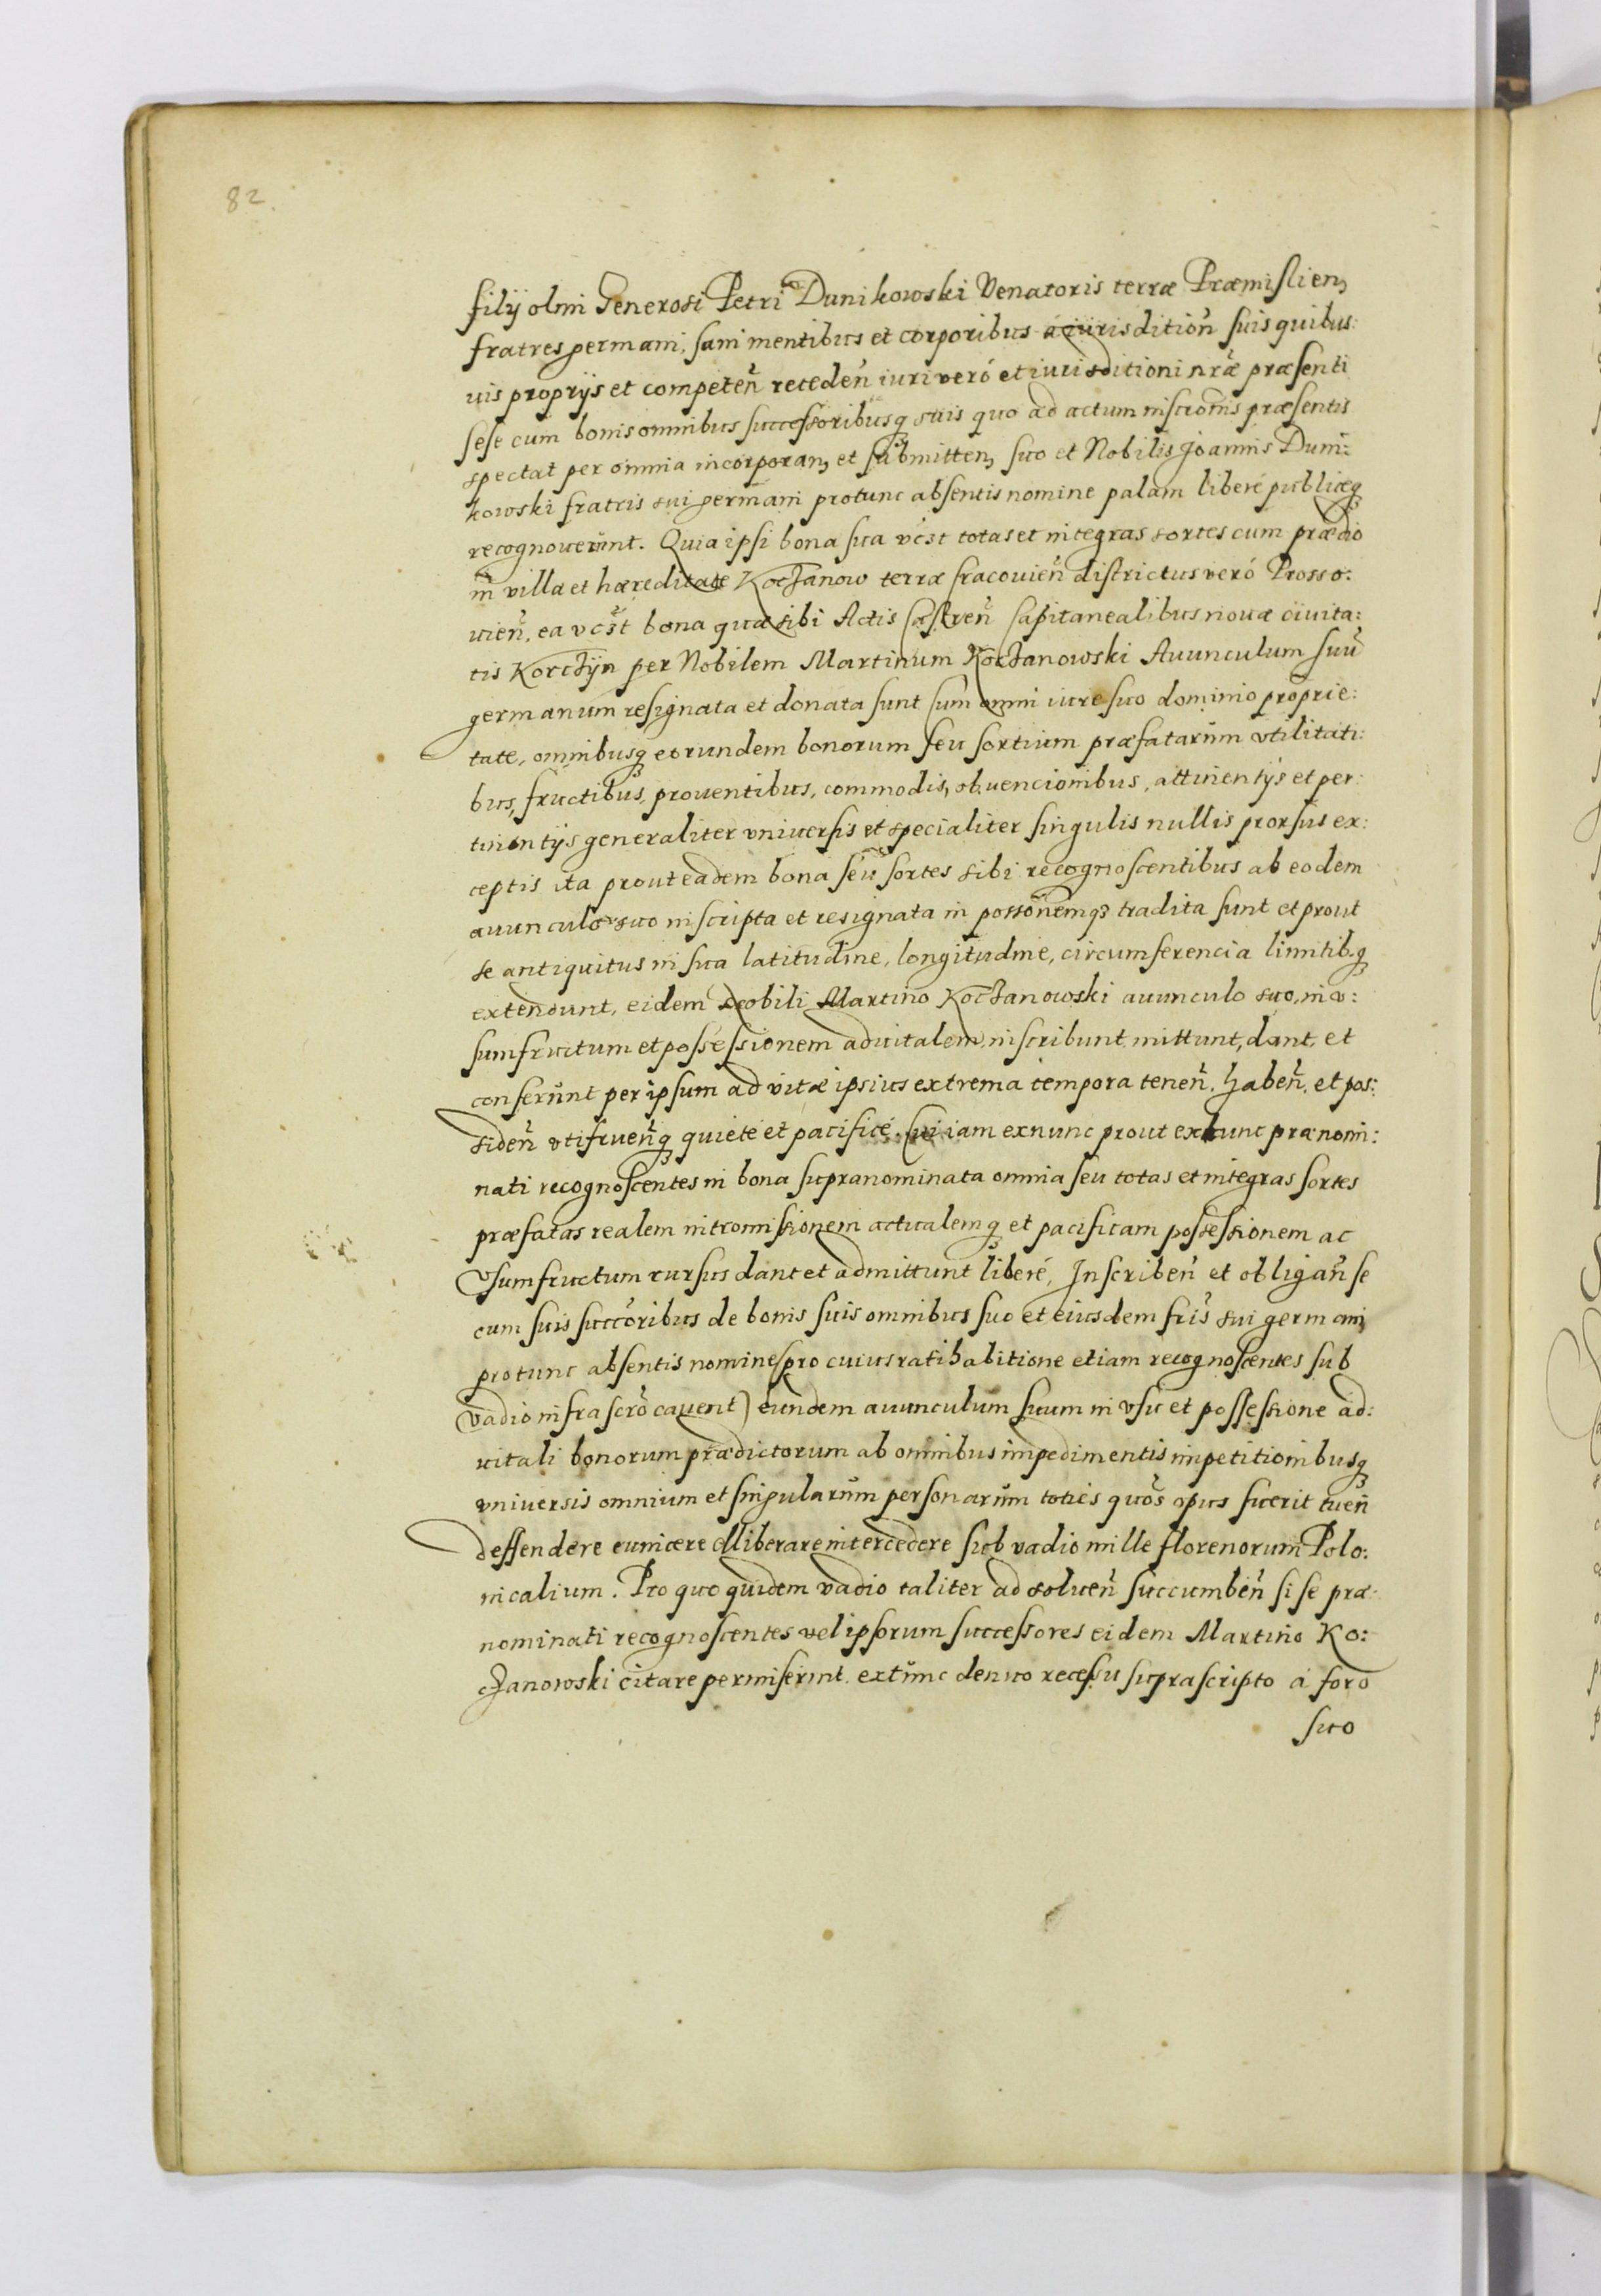 82.
filij olmi Generosi Petri Dunikowski Venatoris terræ Præmislien,
fratres germani, sani mentibus et corporibus a iurisdition̄ suis quibus:
uis proprijs et competen̄ receden̄ iuri veró et iurisditioni nr̄æ præsenti
sese cum bonis omnibus successoribusq suis quo ad actum inscrōnis præsentis
spectat per omnia incorporan, et submitten, suo et Nobilis Joannis Duni:
kowski fratris sui germani protunc absentis nomine palam liberé publicéq
recognouerunt. Quia ipsi bona sua vc̄st totas et integras sortes cum prædio
in villa et hæreditate Kochanow terræ Cracouien̄ districtus veró Prosso:
uien̄, ea vc̄st bona quæ sibi Actis Castren̄ Capitanealibus nouæ ciuita:
tis Korchijn per Nobilem Martinum Kochanowski Auunculum suū
germanum resignata et donata sunt Cum omni iure suo dominio proprie:
tate, omnibusq eorundem bonorum seu sortium præfatarum vtilitati:
bus, fructibus, prouentibus, commodis, obuencionibus, attinentijs et per:
tinentijs generaliter vniuersis et specialiter singulis nullis prorsus ex:
ceptis ita prout eadem bona seu sortes sibi recognoscentibus ab eodem
auunculo suo inscripta et resignata in possōnemq tradita sunt et prout
se antiquitus in sua latitudine, longitudine, circumferencia limitibq
extendunt, eidem Nobili Martino Kochanowski auunculo suo, in v:
sumfructum et possessionem aduitalem, inscribunt, mittunt, dant, et
conferunt per ipsum ad vitæ ipsius extrema tempora tenen̄. haben̄. et pos:
siden̄ vtifruen̄q quiete et pacificé. Cui iam exnunc prout extunc prænomi:
nati recognoscentes in bona supranominata omnia seu totas et integras sortes
præfatas realem intromissionem actualemq et pacificam possessionem ac
vsumfructum rursus dant et admittunt liberé, Inscriben̄ et obligan̄ se
cum suis succōribus de bonis suis omnibus suo et eiusdem fris̄ sui germani
protunc absentis nomine (pro cuius ratihabitione etiam recognoscentes sub
vadio infrascrō cauent) eundem auunculum suum in vsu et possessione ad:
uitali bonorum prædictorum ab omnibus impedimentis impetitionibusq
vniuersis omnium et singularum personarum toties quōs opus fuerit tuen̄
deffendere euincere et liberare intercedere sub vadio mille florenorum Polo:
nicalium. Pro quo quidem vadio taliter ad soluen̄ succumben̄ si se præ:
nominati recognoscentes vel ipsorum successores eidem Martino Ko:
chanowski citare permiserint. extunc denuo recessu suprascripto á foro
suo